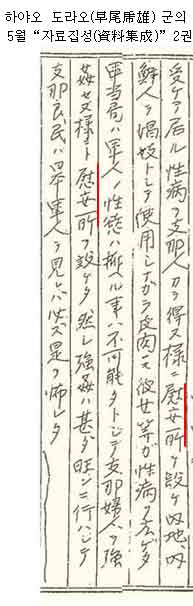 하야오 도라오(早尾乕雄) 군의
5월 “자료집성(資料集成)” 2권
受ケテ居ル性病ヲ支那人カラ得ヌ様ニ慰安所ヲ設ケ内地、内
鮮人ヲ娼妓トシテ使用シナガラ皮肉ニモ彼女等ガ性病ヲ広ゲタ
軍当局ハ軍人ノ性慾ハ抑ヘル事ハ不可能ダトシテ支那婦人ヲ強
姦セヌ様ニト慰安所ヲ設ケタ然シ強姦ハ甚ダ旺ンニ行ハレテ
支那良民ハ日本軍人ヲ見レバ必ズ是ヲ怖レタ